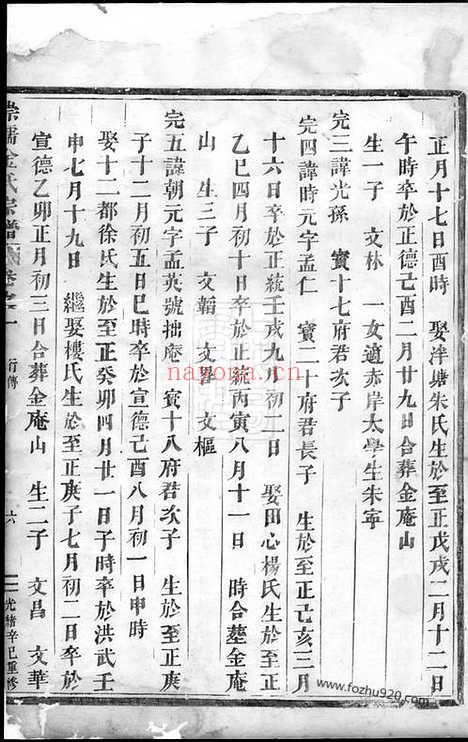 正月十七日酉時　娶泮塘朱氏生於至正戊戌二月十二日
午時卒於正德己酉二月廿九日合葬金庵山
生一子　文林　一女適赤岸太學生朱寧
完三諱光孫　寳十七府君次子
完四諱時元字孟仁　寳二十府君長子　生於至正己亥三月
十六日卒於正統壬戌九月初二日　娶田心楊氏生於至正
乙巳四月初十日卒於正統丙寅八月十一日　時合塟金庵
山　生三子　文韜　文畧　文樞
完五諱朝元字孟英號拙庵　寳十八府君次子　生於至正庚
子十二月初五日巳時卒於宣德己酉八月初一日申時
娶十二都徐氏生於至正癸卯四月廿一日子時卒於洪武壬
申七月十九日　繼娶樓氏生於至正庚子七月初二日卒於
宣德乙卯正月初三日合葬金庵山　生二子　文昌　文華
金氏宗譜　卷　一　行傳　六　光緒辛巳重修
nayona.cn
www.fozhu920.com